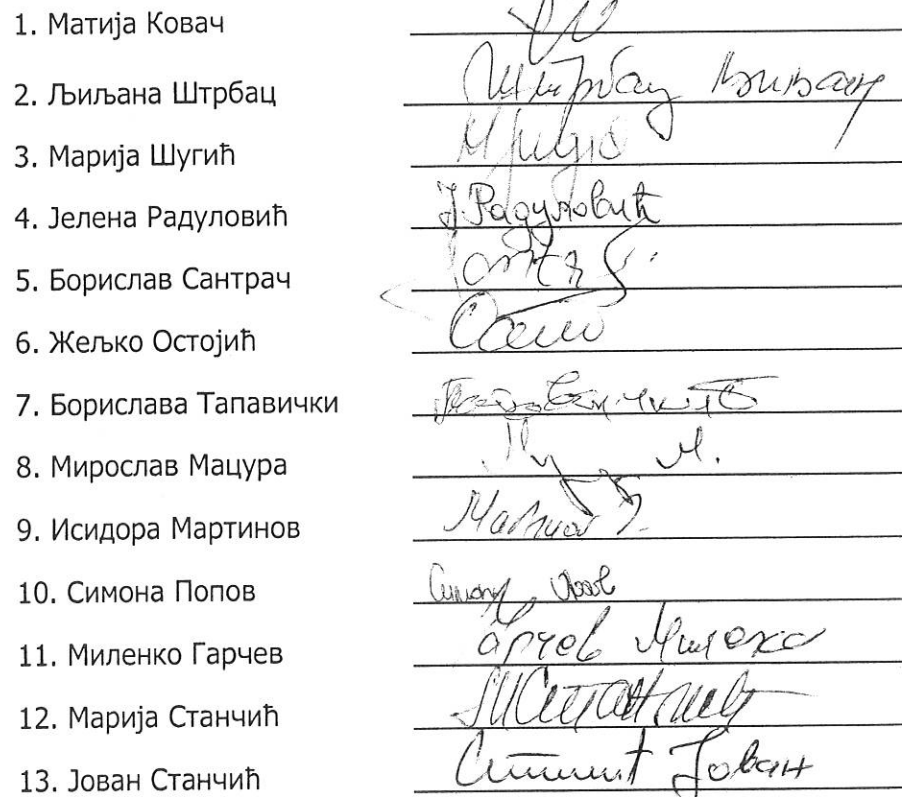 1. Матија Ковач
2. Љиљана Штрбац Штрбац Љиљана
3. Марија Шугић
4. Јелена Радуловић Ј Радуловић
5. Борислав Сантрач
6. Жељко Остојић
7. Борислава Тапавички
8. Мирослав Мацура М.
9. Исидора Мартинов
10. Симона Попов Симона Попов
11. Миленко Гарчев Гарчев Миленко
12. Марија Станчић МСтанчић
13. Јован Станчић Јован